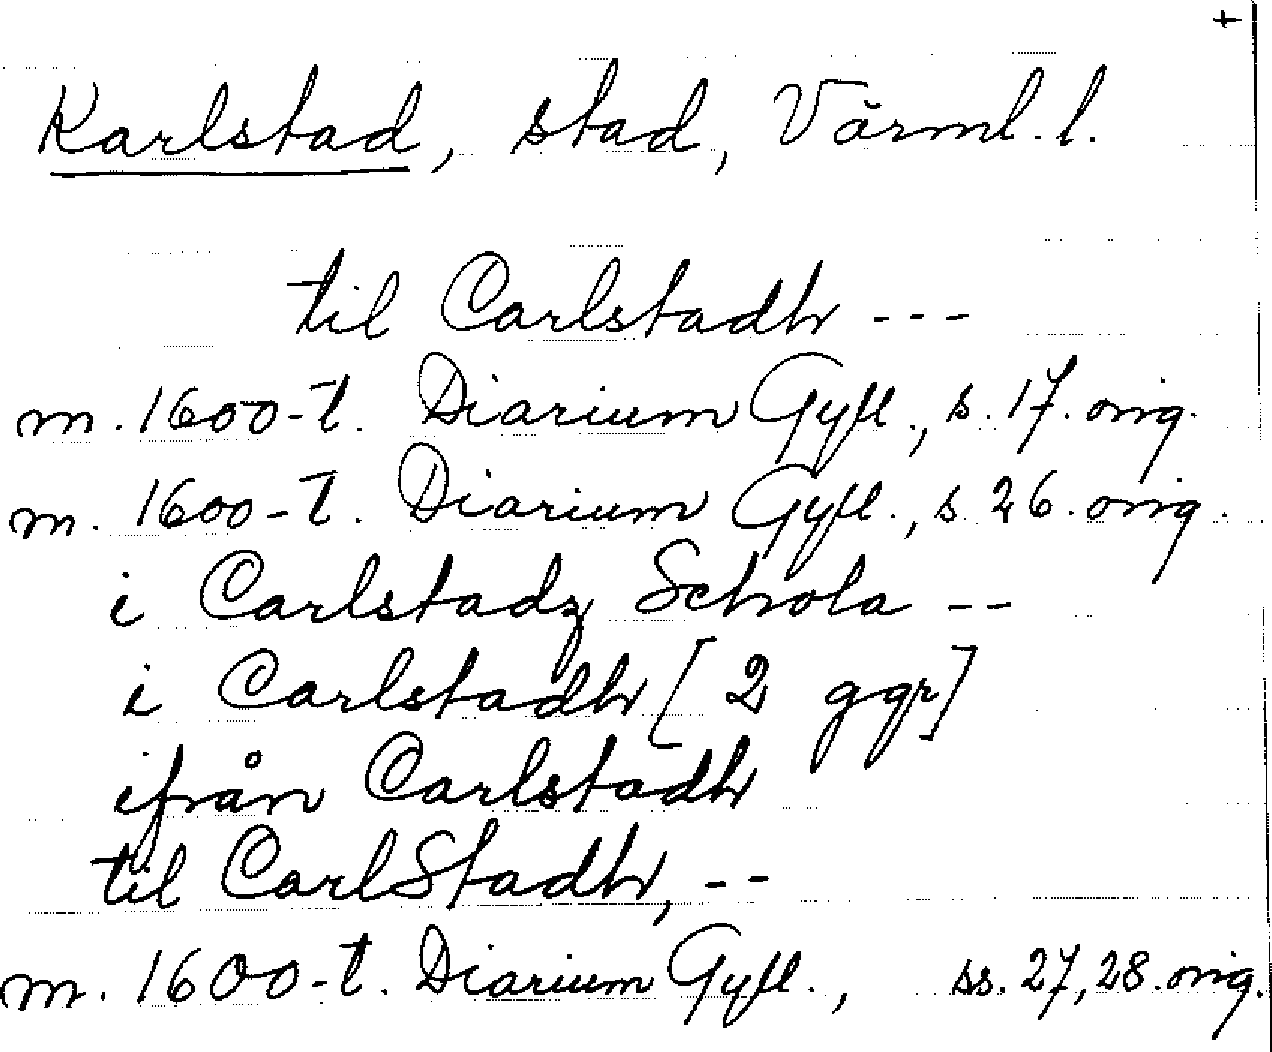 +
Karlstad, stad, Värml. l.
til Carlstadh ---
m. 1600-t. Diarium Gyll., s. 17. orig.
m. 1600-t. Diarium Gyll., s. 26. orig.
i Carlstadz Schola --
i Carlstadh [2 ggr]
ifrån Carlstadh
til CarlStadh, --
m. 1600-t. Diarium Gyll., ss. 27, 28. orig.